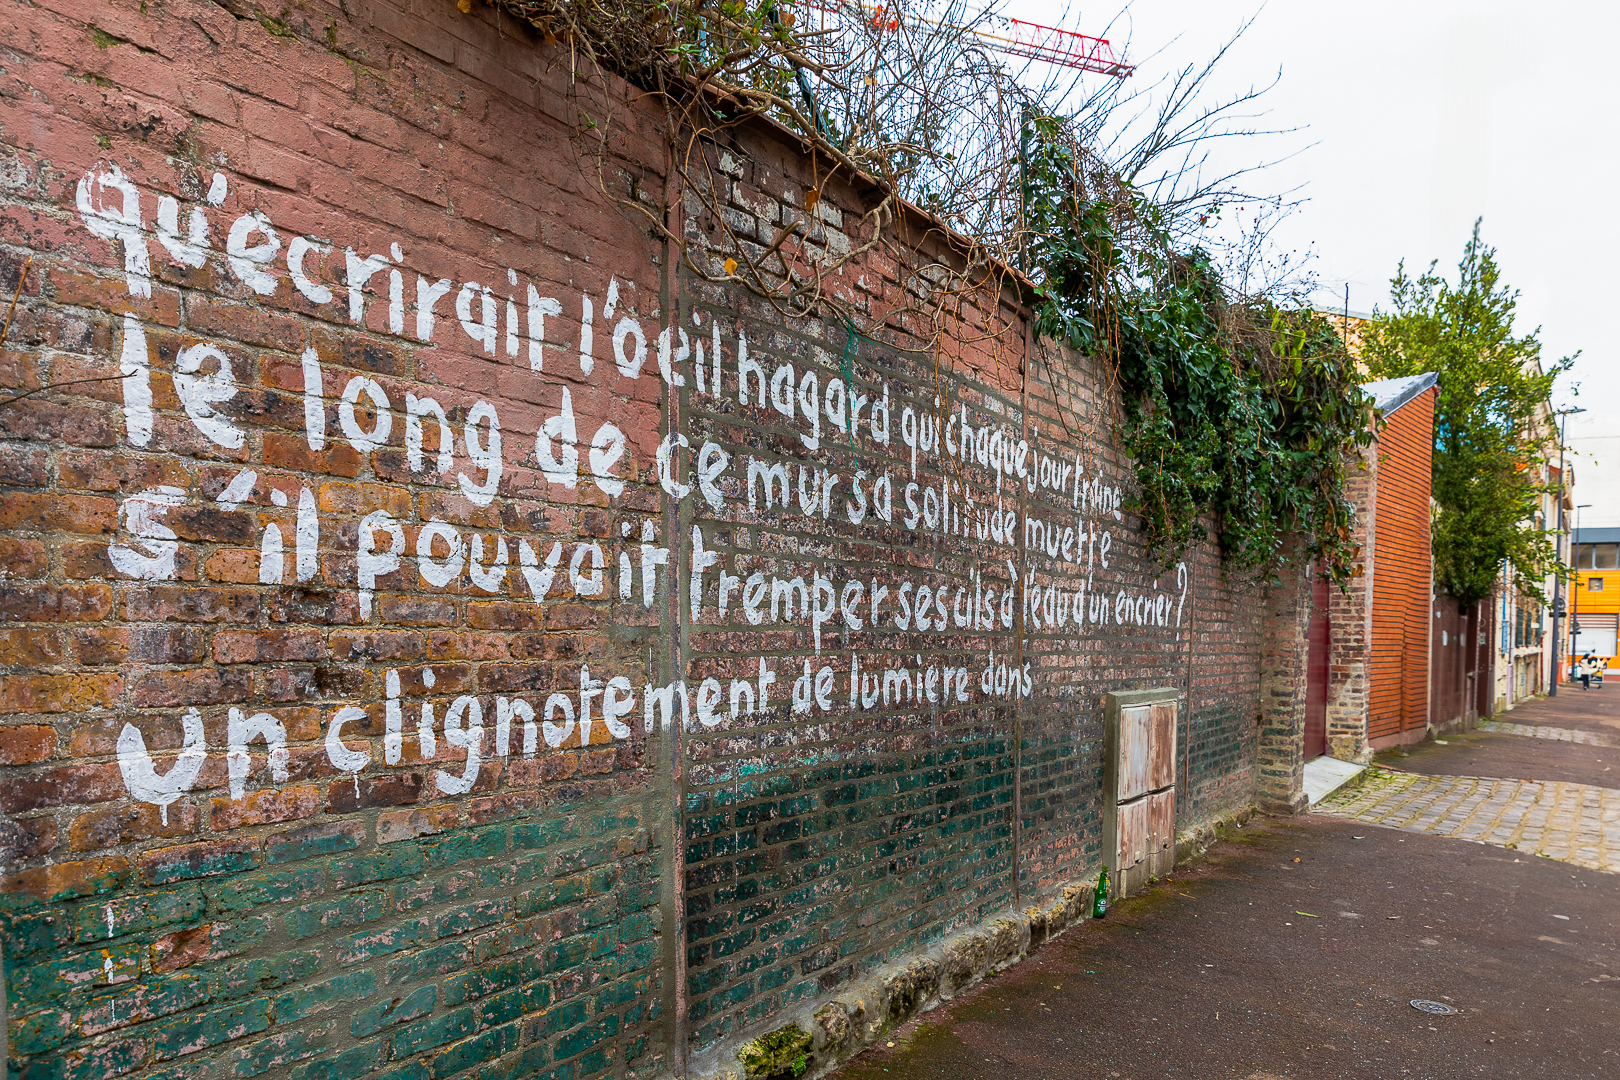 Qu'écrirait l'oeil hagard qui chaque jour traine
le long de ce mur sa solitude muette
s'il pouvait tremper ses cils à l'eau d'un encrier ?
un clignotement de lumiere dans